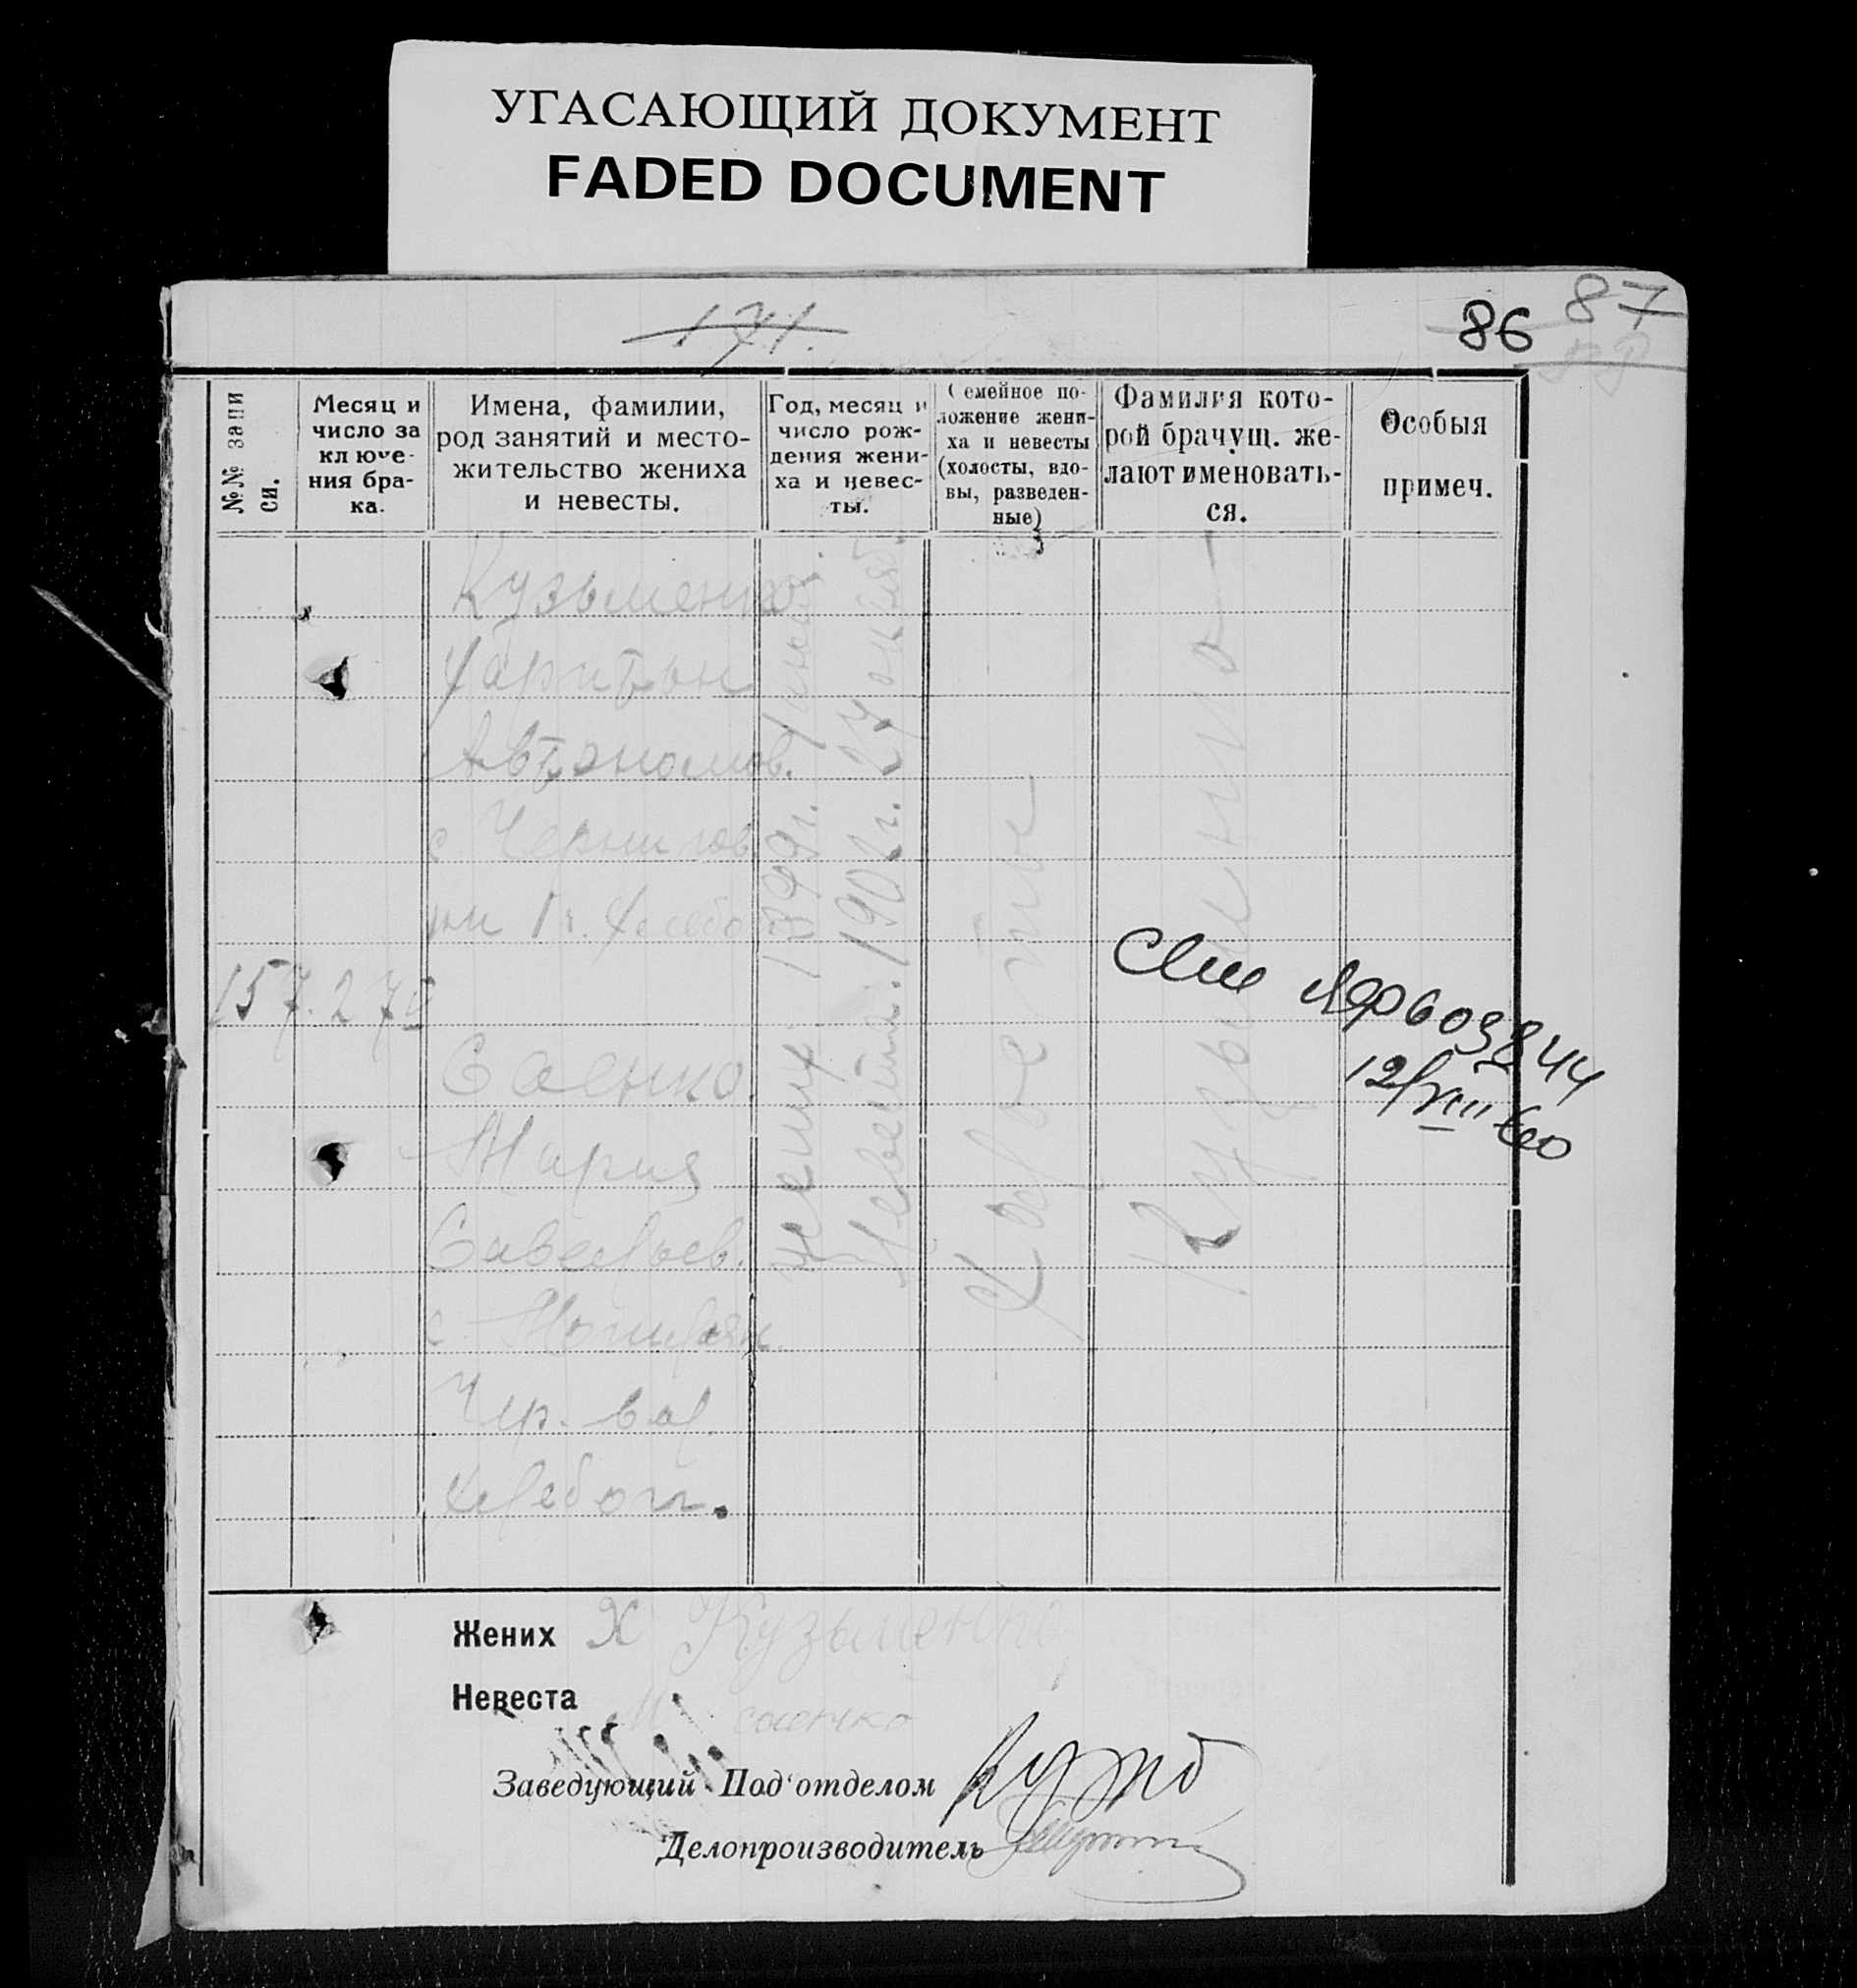 УГАСАЮЩИЙ ДОКУМЕНТ
FADED DOCUMENT
171.
86
87
№№ запи
си.
Месяц и
число за
ключе-
ния бра-
ка.
Имена, фамилии,
род занятий и место-
жительство жениха
и невесты.
Год, месяц и
число рож-
дения жени-
ха и невес-
ты.
Семейное по-
ложение жени-
ха и невесты
(холосты, вдо-
вы, разведен-
ные)
Фамилия кото-
рой брачущ. же-
лают именовать-
ся.
Особыя
примеч.
Кузьменко
Харитон
Автономов.
с. Чернигов.
157.
Саенко
Мария
Савельев.
с.
Чер. вол.
хлебоп.
Жених 1899г.
Невеста. 190
Холостые
Кузьменко
603844
12/VIII 60
Жених Х Кузьменко
Невеста М Саенко
Заведующий Под'отделом
Делопроизводитель